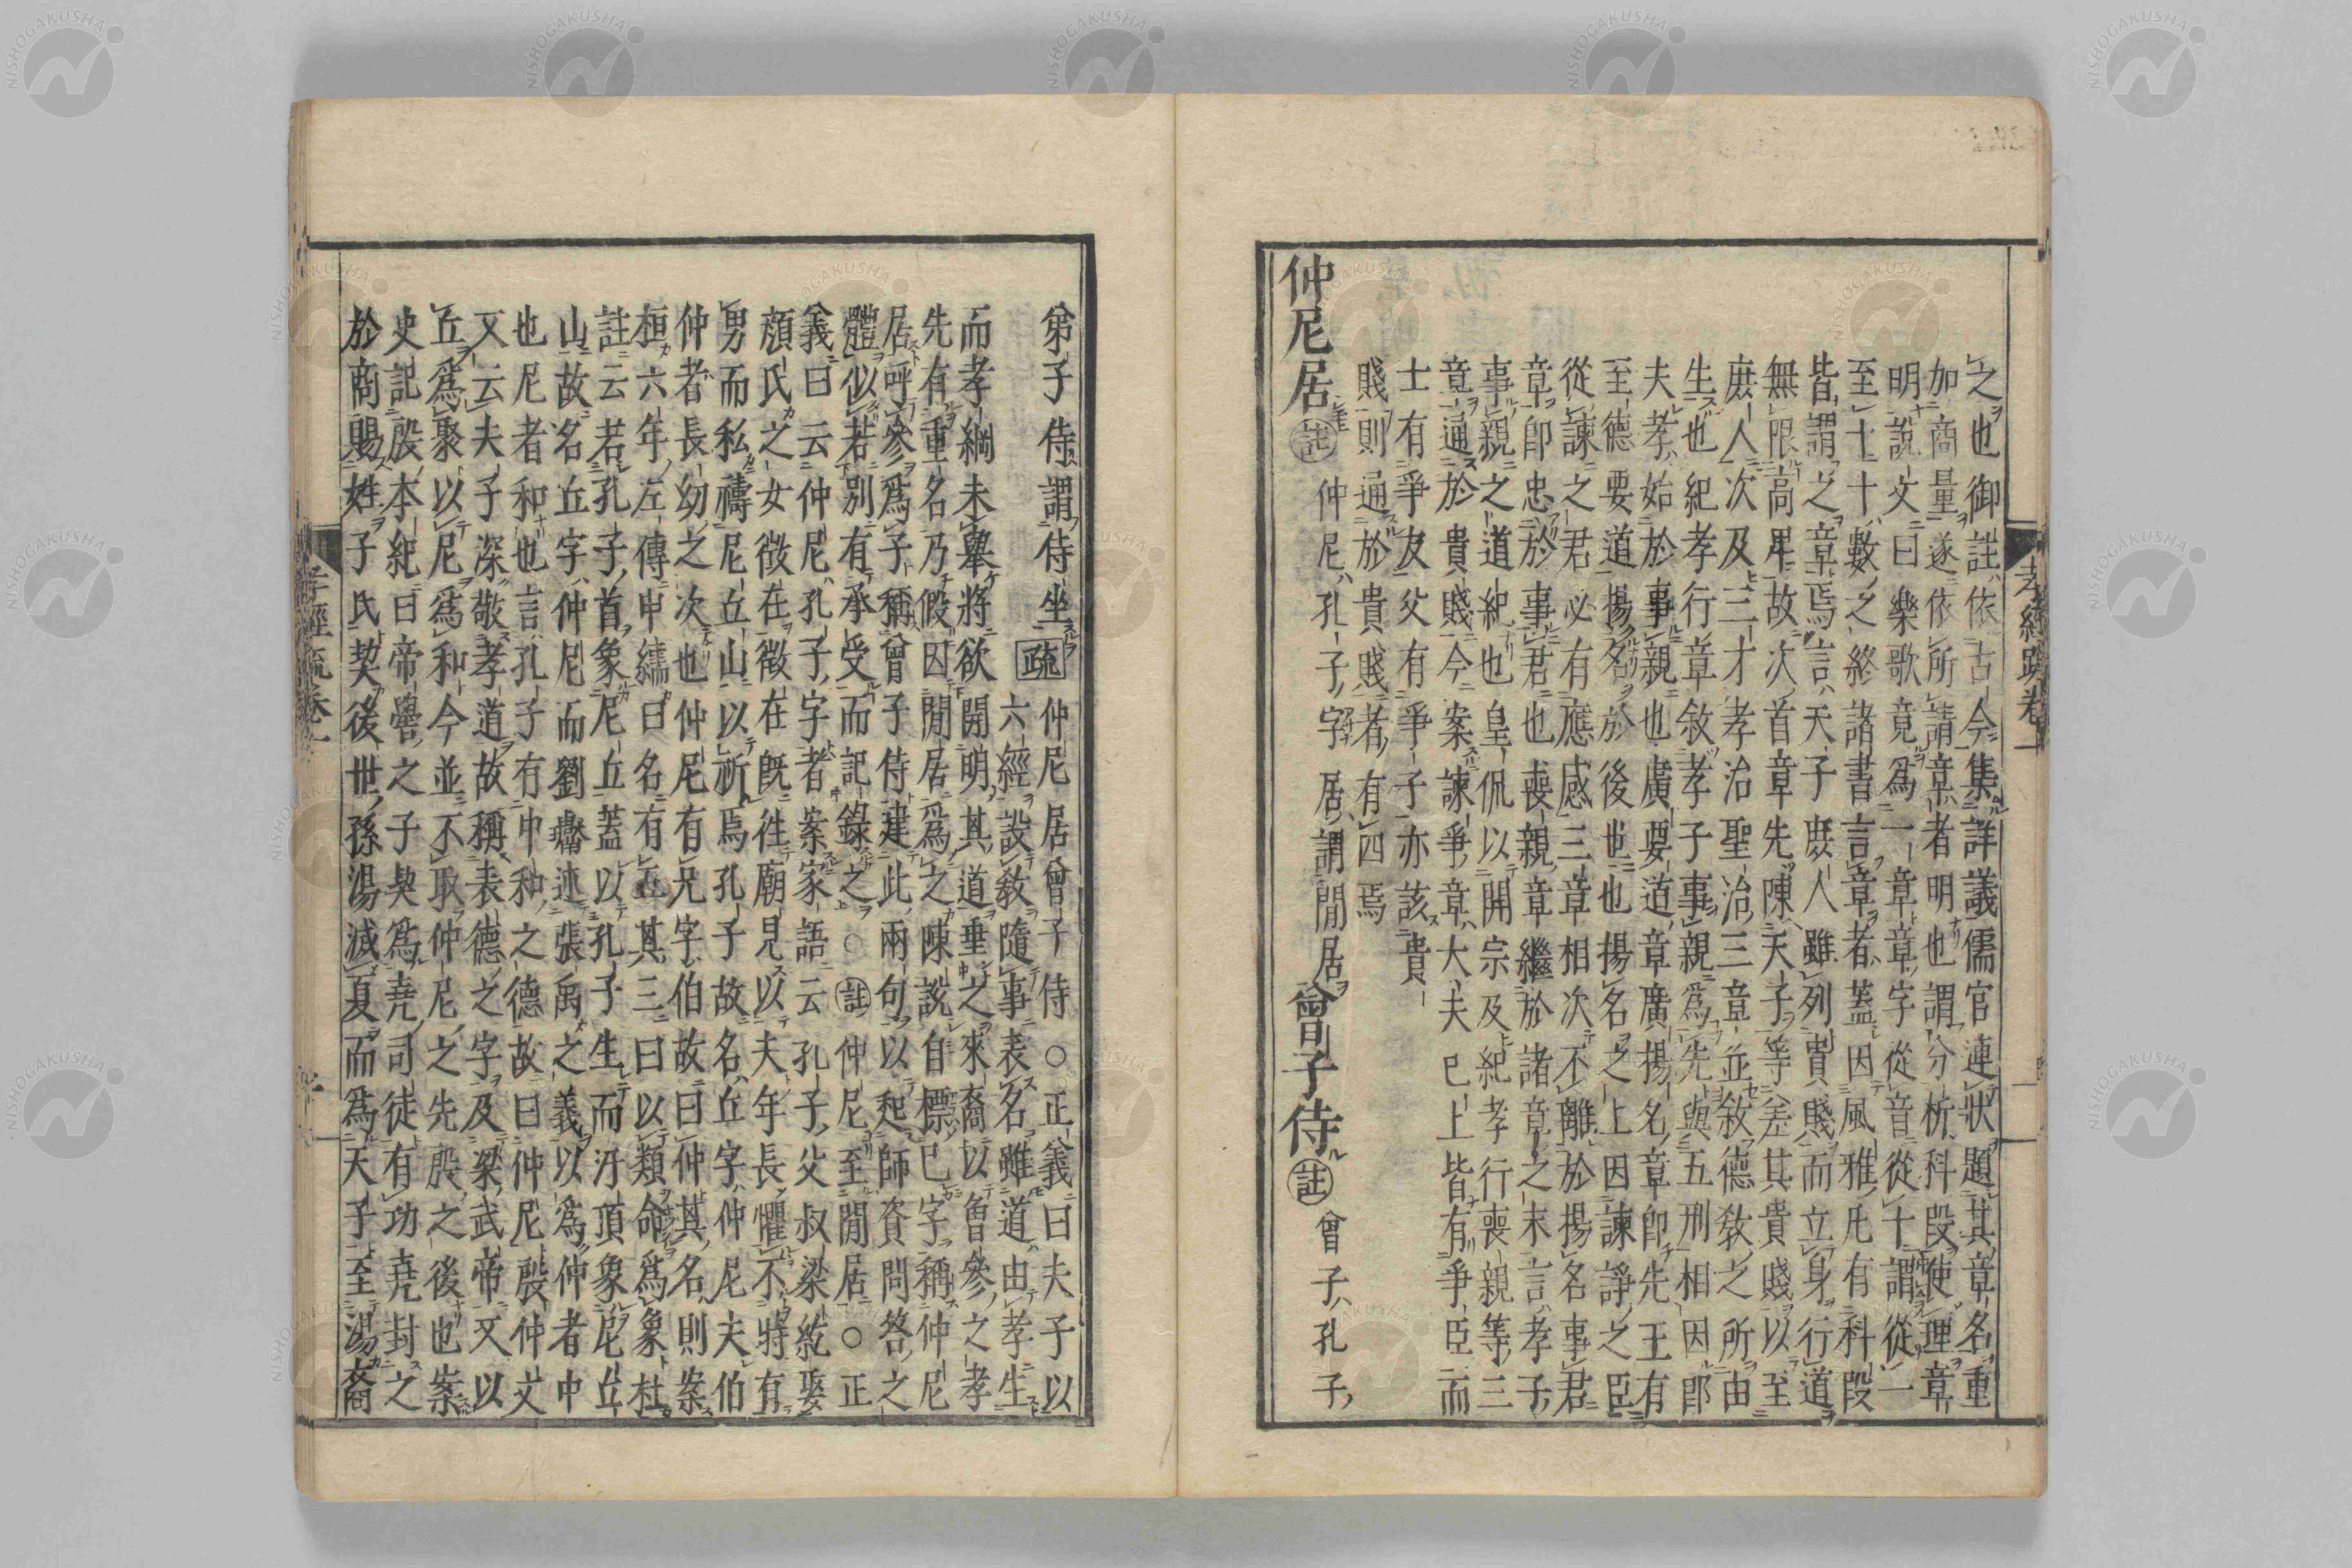 之也御註依古今集詳議儒官連狀題其章名重
加商量遂依所請章者明也謂分析科段使理章
明説文曰樂歌竟爲一章章字從音從十謂從一
至十十數之終諸書言章者蓋因風雅凡有科段
皆謂之章焉言天子庶人雖列貴賤而立身行道
無限高卑故次首章先陳天子等差其貴賤以至
庶人次及三才孝治聖治三章並敘德敎之所由
生也紀孝行章敘孝子事親爲先與五刑相因卽
夫孝始於事親也廣要道章廣揚名章卽先王有
至德要道揚名於後世也揚名之上因諫諍之臣
從諫之君必有應感三章相次不離於揚名事君
章卽忠於事君也喪親章繼於諸章之末言孝子
事親之道紀也皇侃以開宗及紀孝行喪親等三
章通於貴賤今案諫爭章大夫已上皆有爭臣而
士有爭友父有爭子亦該貴
賤則通於貴賤者有四焉
仲尼居 註 仲尼孔子字居謂閒居 曾子侍 註 曾子孔子
孝經疏卷一
弟子侍謂侍坐 疏 仲尼居曾子侍○正義曰夫子以
六經設敎隨事表名雖道由孝生
而孝綱未舉將欲開明其道垂之來裔以曾參之孝
先有重名乃假因閒居爲之陳說自標己字稱仲尼
居呼參爲子稱曾子侍建此兩句以起師資問答之
體似若別有承受而記錄之○註仲尼至閒居○正
義曰云仲尼孔子字者案家語云孔子父叔梁紇娶
顏氏之女徵在徵在旣徃廟見以夫年長懼不時有
男而私禱尼丘山以祈焉孔子故名丘字仲尼夫伯
仲者長幼之次也仲尼有兄字伯故曰仲其名則案
桓六年左傳申繻曰名有五其三曰以類命爲象杜
註云若孔子首象尼丘蓋以孔子生而汙頂象尼丘
山故名丘字仲尼而劉瓛述張禹之義以爲仲者中
也尼者和也言孔子有中和之德故曰仲尼殷仲文
又云夫子深敬孝道故稱表德之字及梁武帝又以
丘爲聚以尼爲和今並不取仲尼之先殷之後也案
史記殷本紀曰帝嚳之子契爲堯司徒有功堯封之
於商賜姓子氏契後世孫湯滅夏而爲天子至湯裔
孝經疏卷一